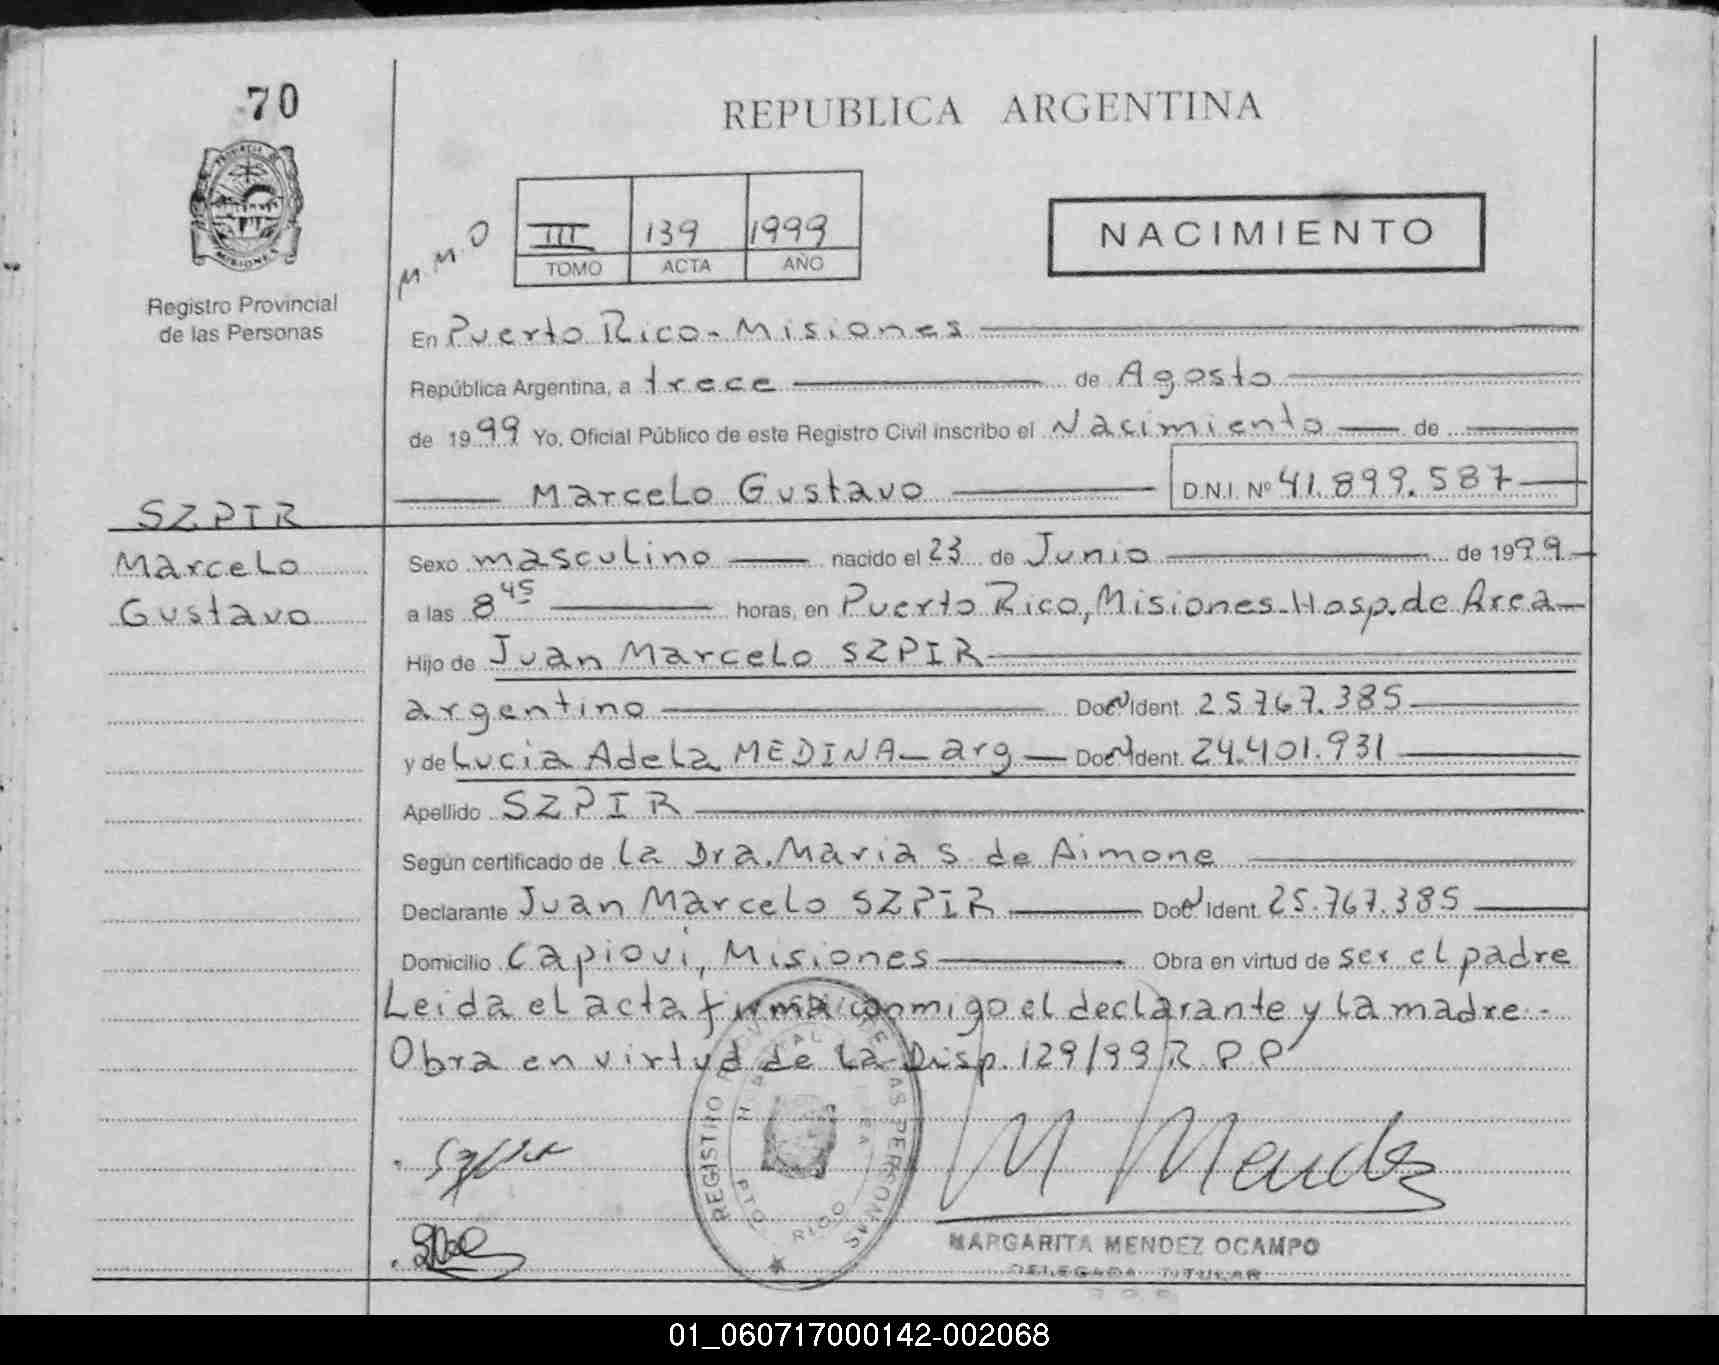 70
REPUBLICA ARGENTINA
PROVINCIA DE
MISIONES
Registro Provincial
de las Personas
M.M.O
III 139 1999
TOMO ACTA AÑO
NACIMIENTO
En Puerto Rico - Misiones
República Argentina, a trece de Agosto
de 1999 Yo. Oficial Público de este Registro Civil inscribo el Nacimiento de
Marcelo Gustavo D.N.I. Nº 41.899.587
SZPIR
Marcelo
Gustavo
Sexo masculino nacido el 23 de Junio de 1999
a las 8 45 horas, en Puerto Rico, Misiones - Hosp. de Area
Hijo de Juan Marcelo SZPIR
argentino Doc Ident. 25.767.385
y de Lucia Adela MEDINA - arg Doc Ident. 24.401.931
Apellido SZPIR
Según certificado de la Dra. Maria S. de Aimone
Declarante Juan Marcelo SZPIR Doc Ident. 25.767.385
Domicilio Capiovi, Misiones Obra en virtud de ser el padre
Leida el acta firma conmigo el declarante y la madre.-
Obra en virtud de la Disp. 129/99 R.P.P
REGISTRO PROVINCIAL DE LAS PERSONAS
PTO RICO
M Mendez
MARGARITA MENDEZ OCAMPO
DELEGADA TITULAR
01_060717000142-002068